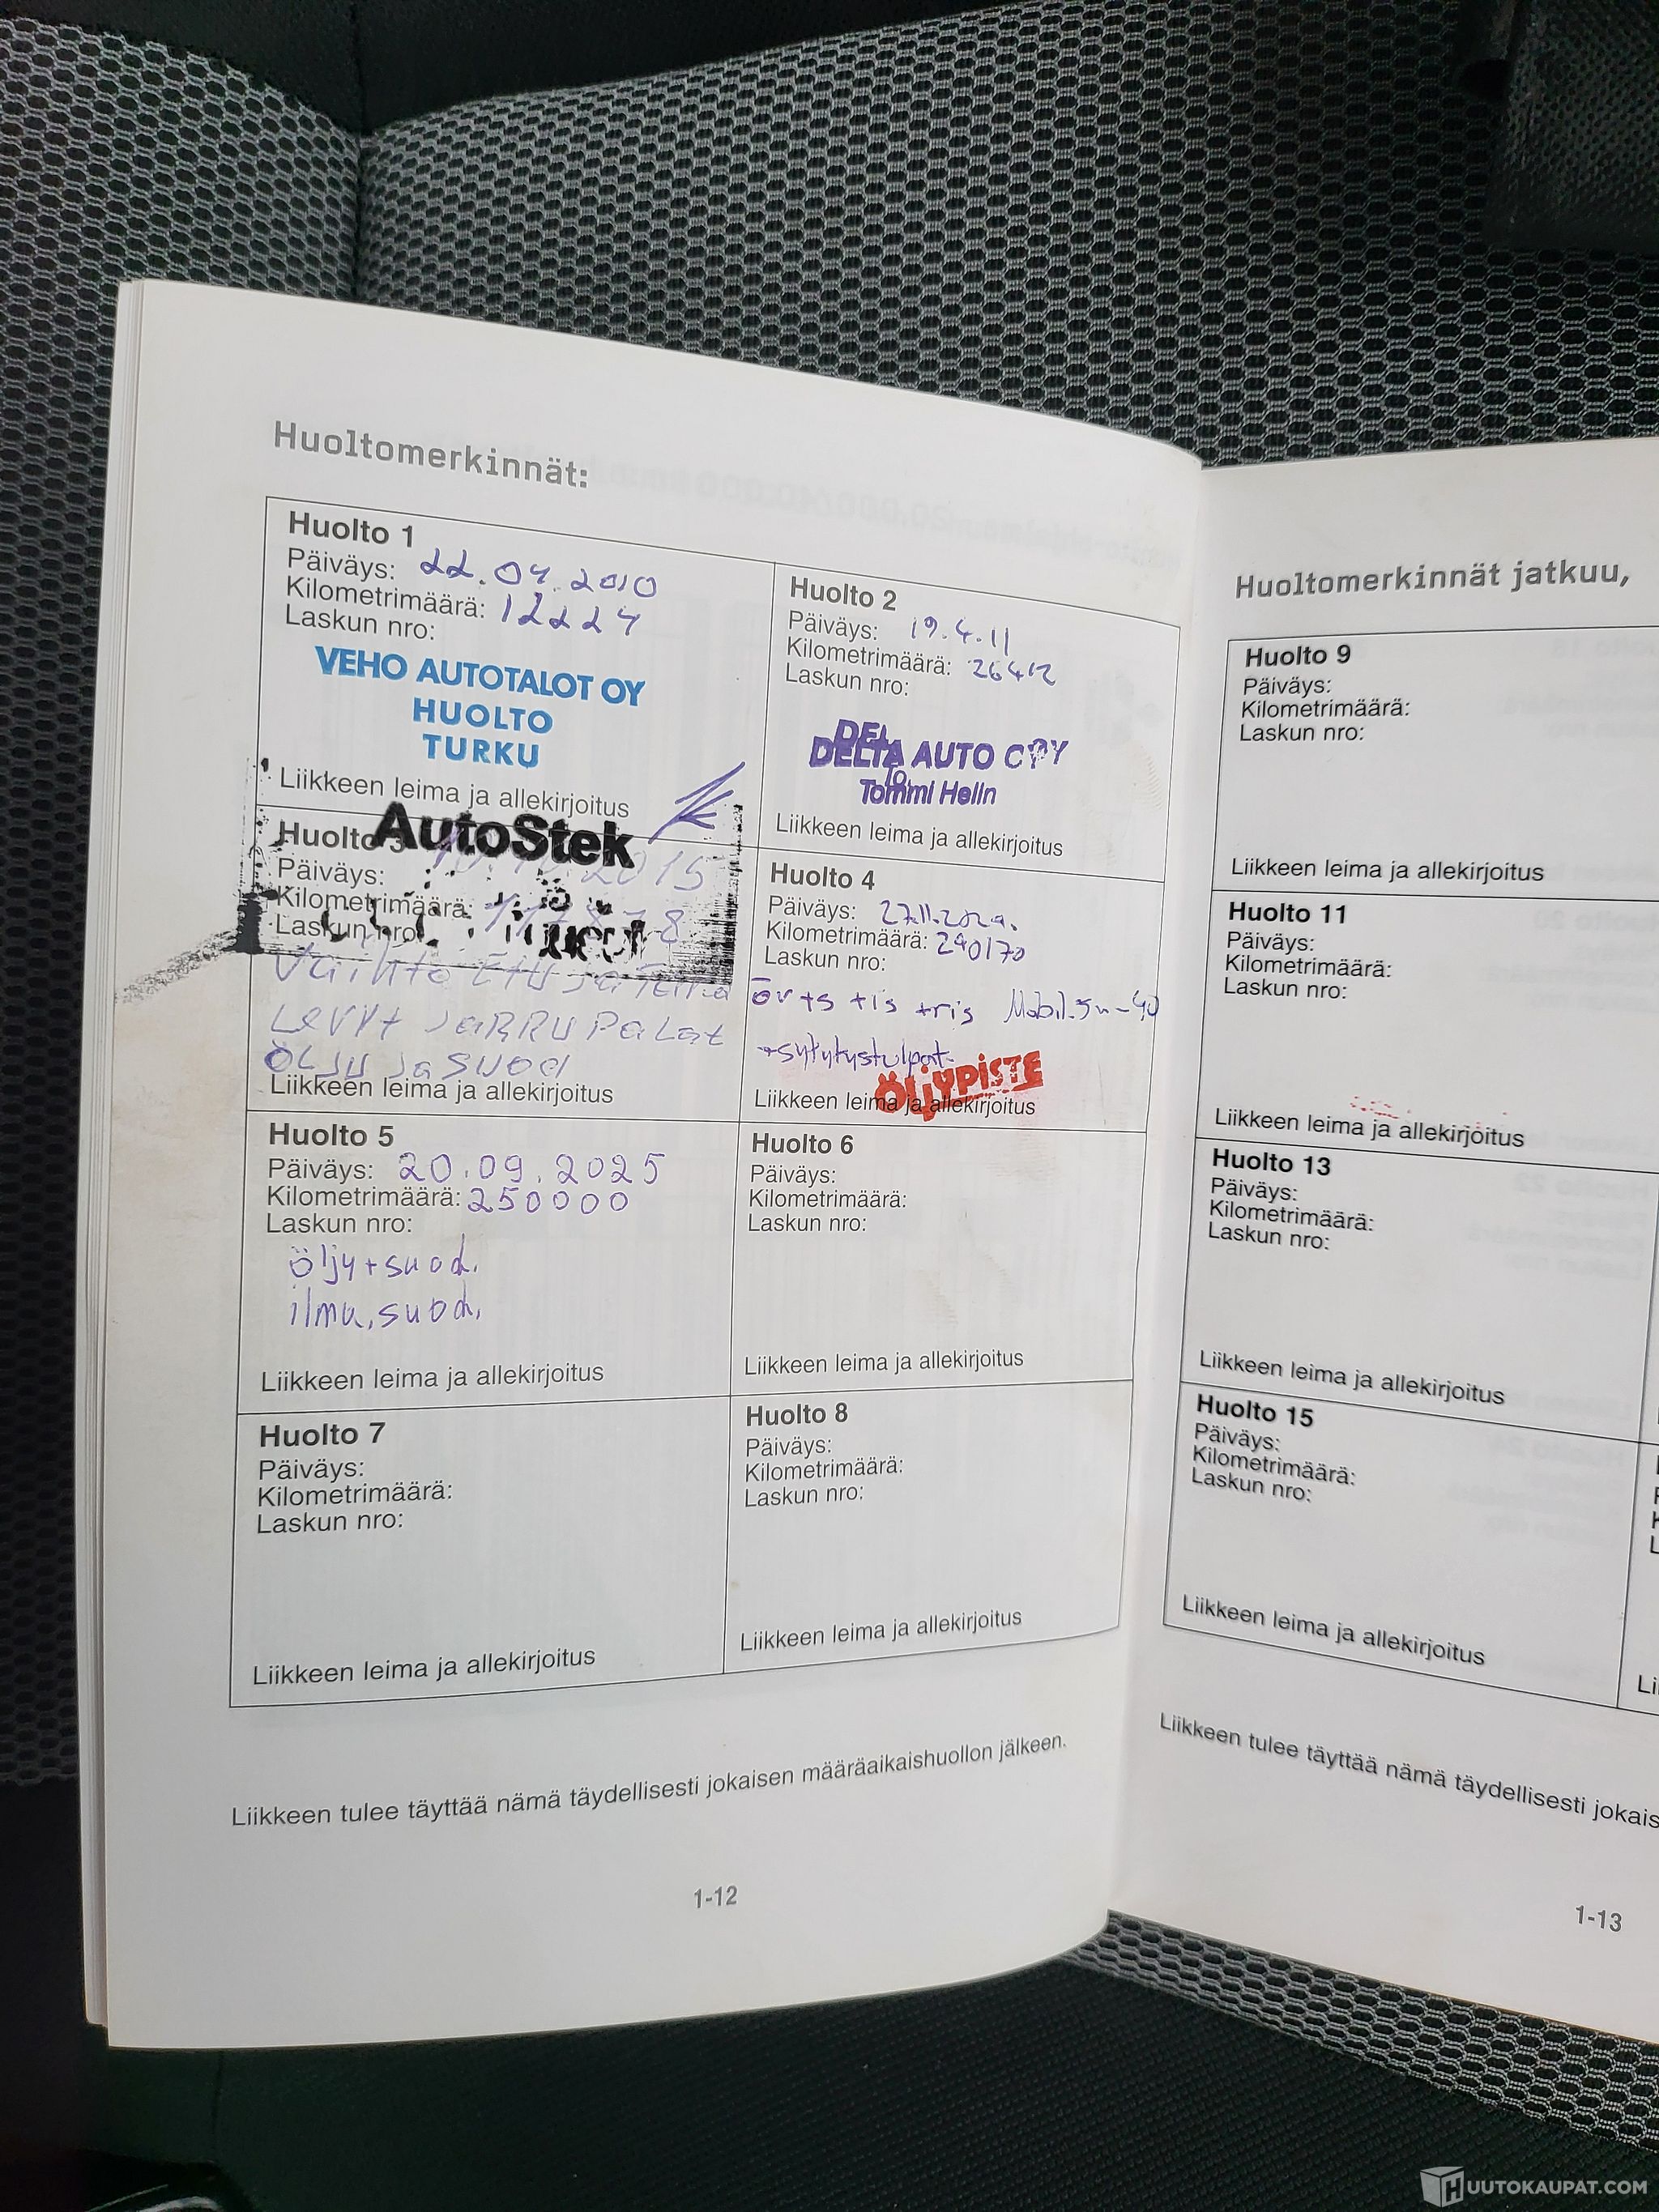 Huoltomerkinnät:
Huolto 1
Päiväys: 22.04.2010
Kilometrimäärä: 12224
Laskun nro:
VEHO AUTOTALOT OY
HUOLTO
TURKU
Liikkeen leima ja allekirjoitus
Huolto 2
Päiväys: 19.4.11
Kilometrimäärä: 26412
Laskun nro:
DELTA AUTO
Tommi Helin
Liikkeen leima ja allekirjoitus
AutoStek
Huolto 3
Päiväys: 2015
Kilometrimäärä:
Laskun nro:
Vaihto ETU ja Taka
LevYt JaRRU PaLat
ÖLJU ja SUOD
Liikkeen leima ja allekirjoitus
Huolto 4
Päiväys:
Kilometrimäärä: 240170
Laskun nro:
öv+s +is +ris
+sytytystulpat
ÖLJYPISTE
Liikkeen leima ja allekirjoitus
Huolto 5
Päiväys: 20.09.2025
Kilometrimäärä: 250000
Laskun nro:
öljy+suod.
ilma.suod.
Liikkeen leima ja allekirjoitus
Huolto 6
Päiväys:
Kilometrimäärä:
Laskun nro:
Liikkeen leima ja allekirjoitus
Huolto 7
Päiväys:
Kilometrimäärä:
Laskun nro:
Liikkeen leima ja allekirjoitus
Huolto 8
Päiväys:
Kilometrimäärä:
Laskun nro:
Liikkeen leima ja allekirjoitus
Liikkeen tulee täyttää nämä täydellisesti jokaisen määräaikaishuollon jälkeen.
1-12
Huoltomerkinnät jatkuu,
Huolto 9
Päiväys:
Kilometrimäärä:
Laskun nro:
Liikkeen leima ja allekirjoitus
Huolto 11
Päiväys:
Kilometrimäärä:
Laskun nro:
Liikkeen leima ja allekirjoitus
Huolto 13
Päiväys:
Kilometrimäärä:
Laskun nro:
Liikkeen leima ja allekirjoitus
Huolto 15
Päiväys:
Kilometrimäärä:
Laskun nro:
Liikkeen leima ja allekirjoitus
Liikkeen tulee täyttää nämä täydellisesti jokais
1-13
HUUTOKAUPAT.COM